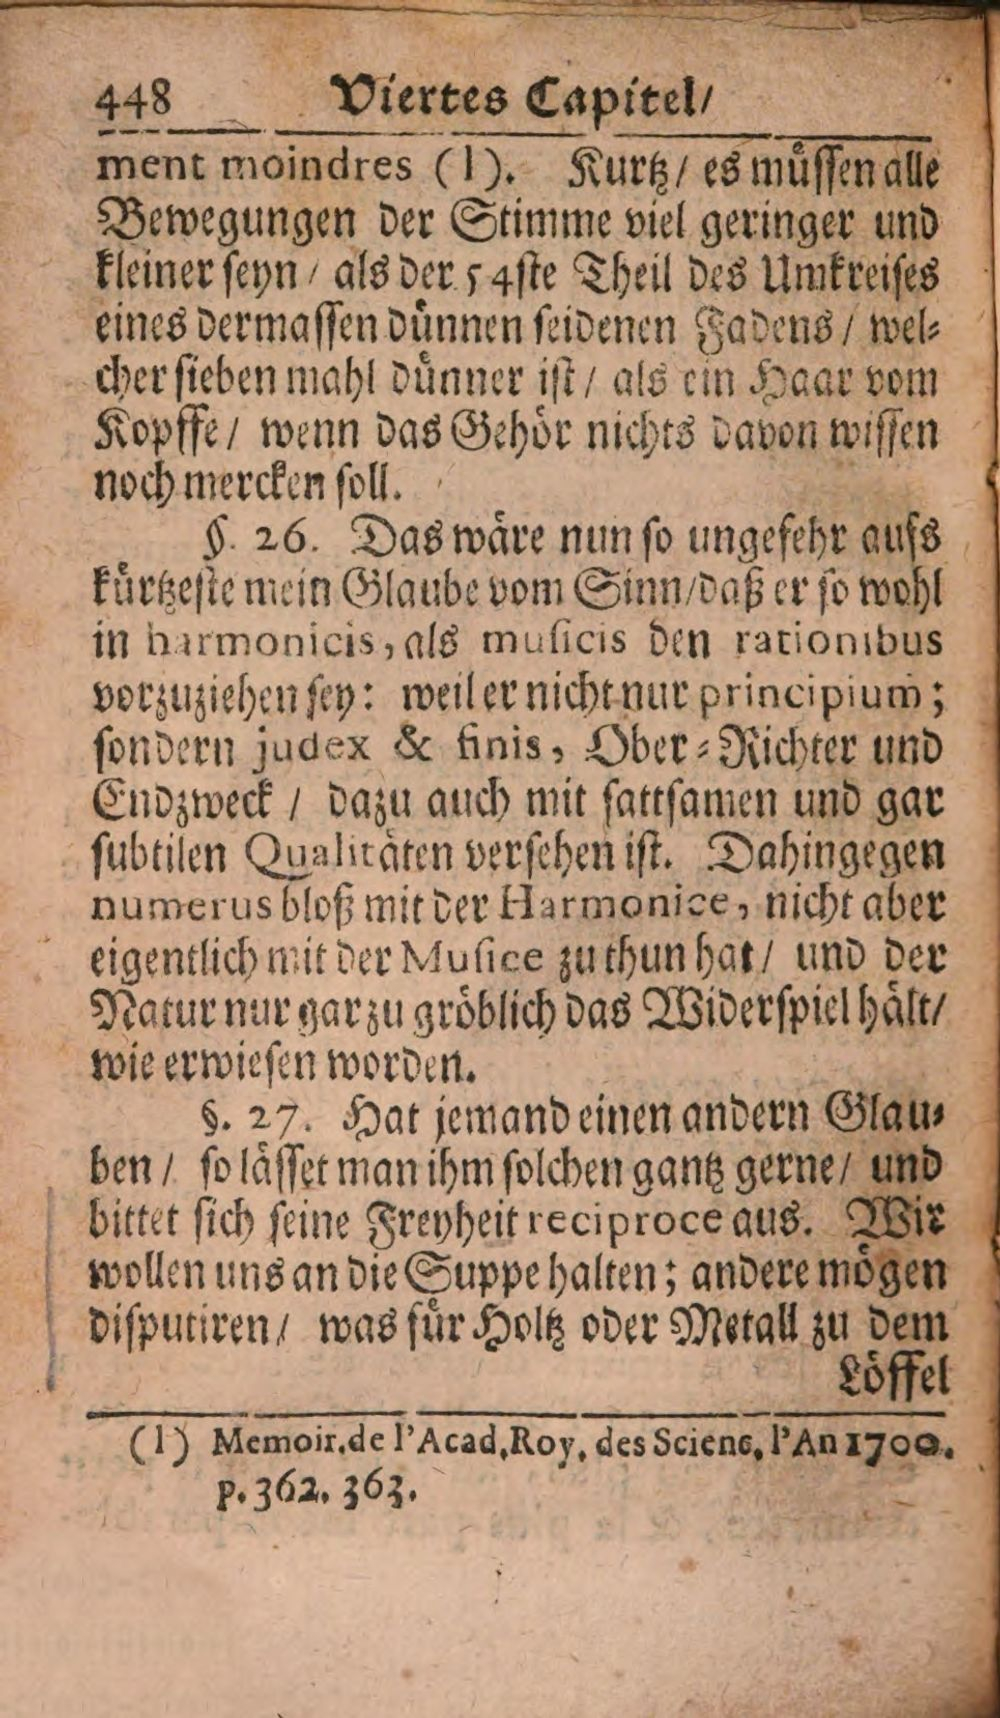 448 Viertes Capitel/
ment moindres (l). Kurtz/ es müssen alle
Bewegungen der Stimme viel geringer und
kleiner seyn/ als der 54ste Theil des Umkreises
eines dermassen dünnen seidenen Fadens/ wel-
cher sieben mahl dünner ist/ als ein Haar vom
Kopffe/ wenn das Gehör nichts davon wissen
noch mercken soll.
§. 26. Das wäre nun so ungefehr aufs
kürtzeste mein Glaube vom Sinn/daß er so wohl
in harmonicis, als musicis den rationibus
vorzuziehen sey: weil er nicht nur principium;
sondern judex & finis, Ober-Richter und
Endzweck / dazu auch mit sattsamen und gar
subtilen Qualitäten versehen ist. Dahingegen
numerus bloß mit der Harmonice, nicht aber
eigentlich mit der Musice zu thun hat/ und der
Natur nur gar zu gröblich das Widerspiel hält/
wie erwiesen worden.
§. 27. Hat jemand einen andern Glau-
ben/ so lässet man ihm solchen gantz gerne/ und
bittet sich seine Freyheit reciproce aus. Wir
wollen uns an die Suppe halten; andere mögen
disputiren/ was für Holtz oder Metall zu dem
Löffel
(l) Memoir. de l'Acad. Roy. des Scienc. l'An 1700.
p. 362. 363.